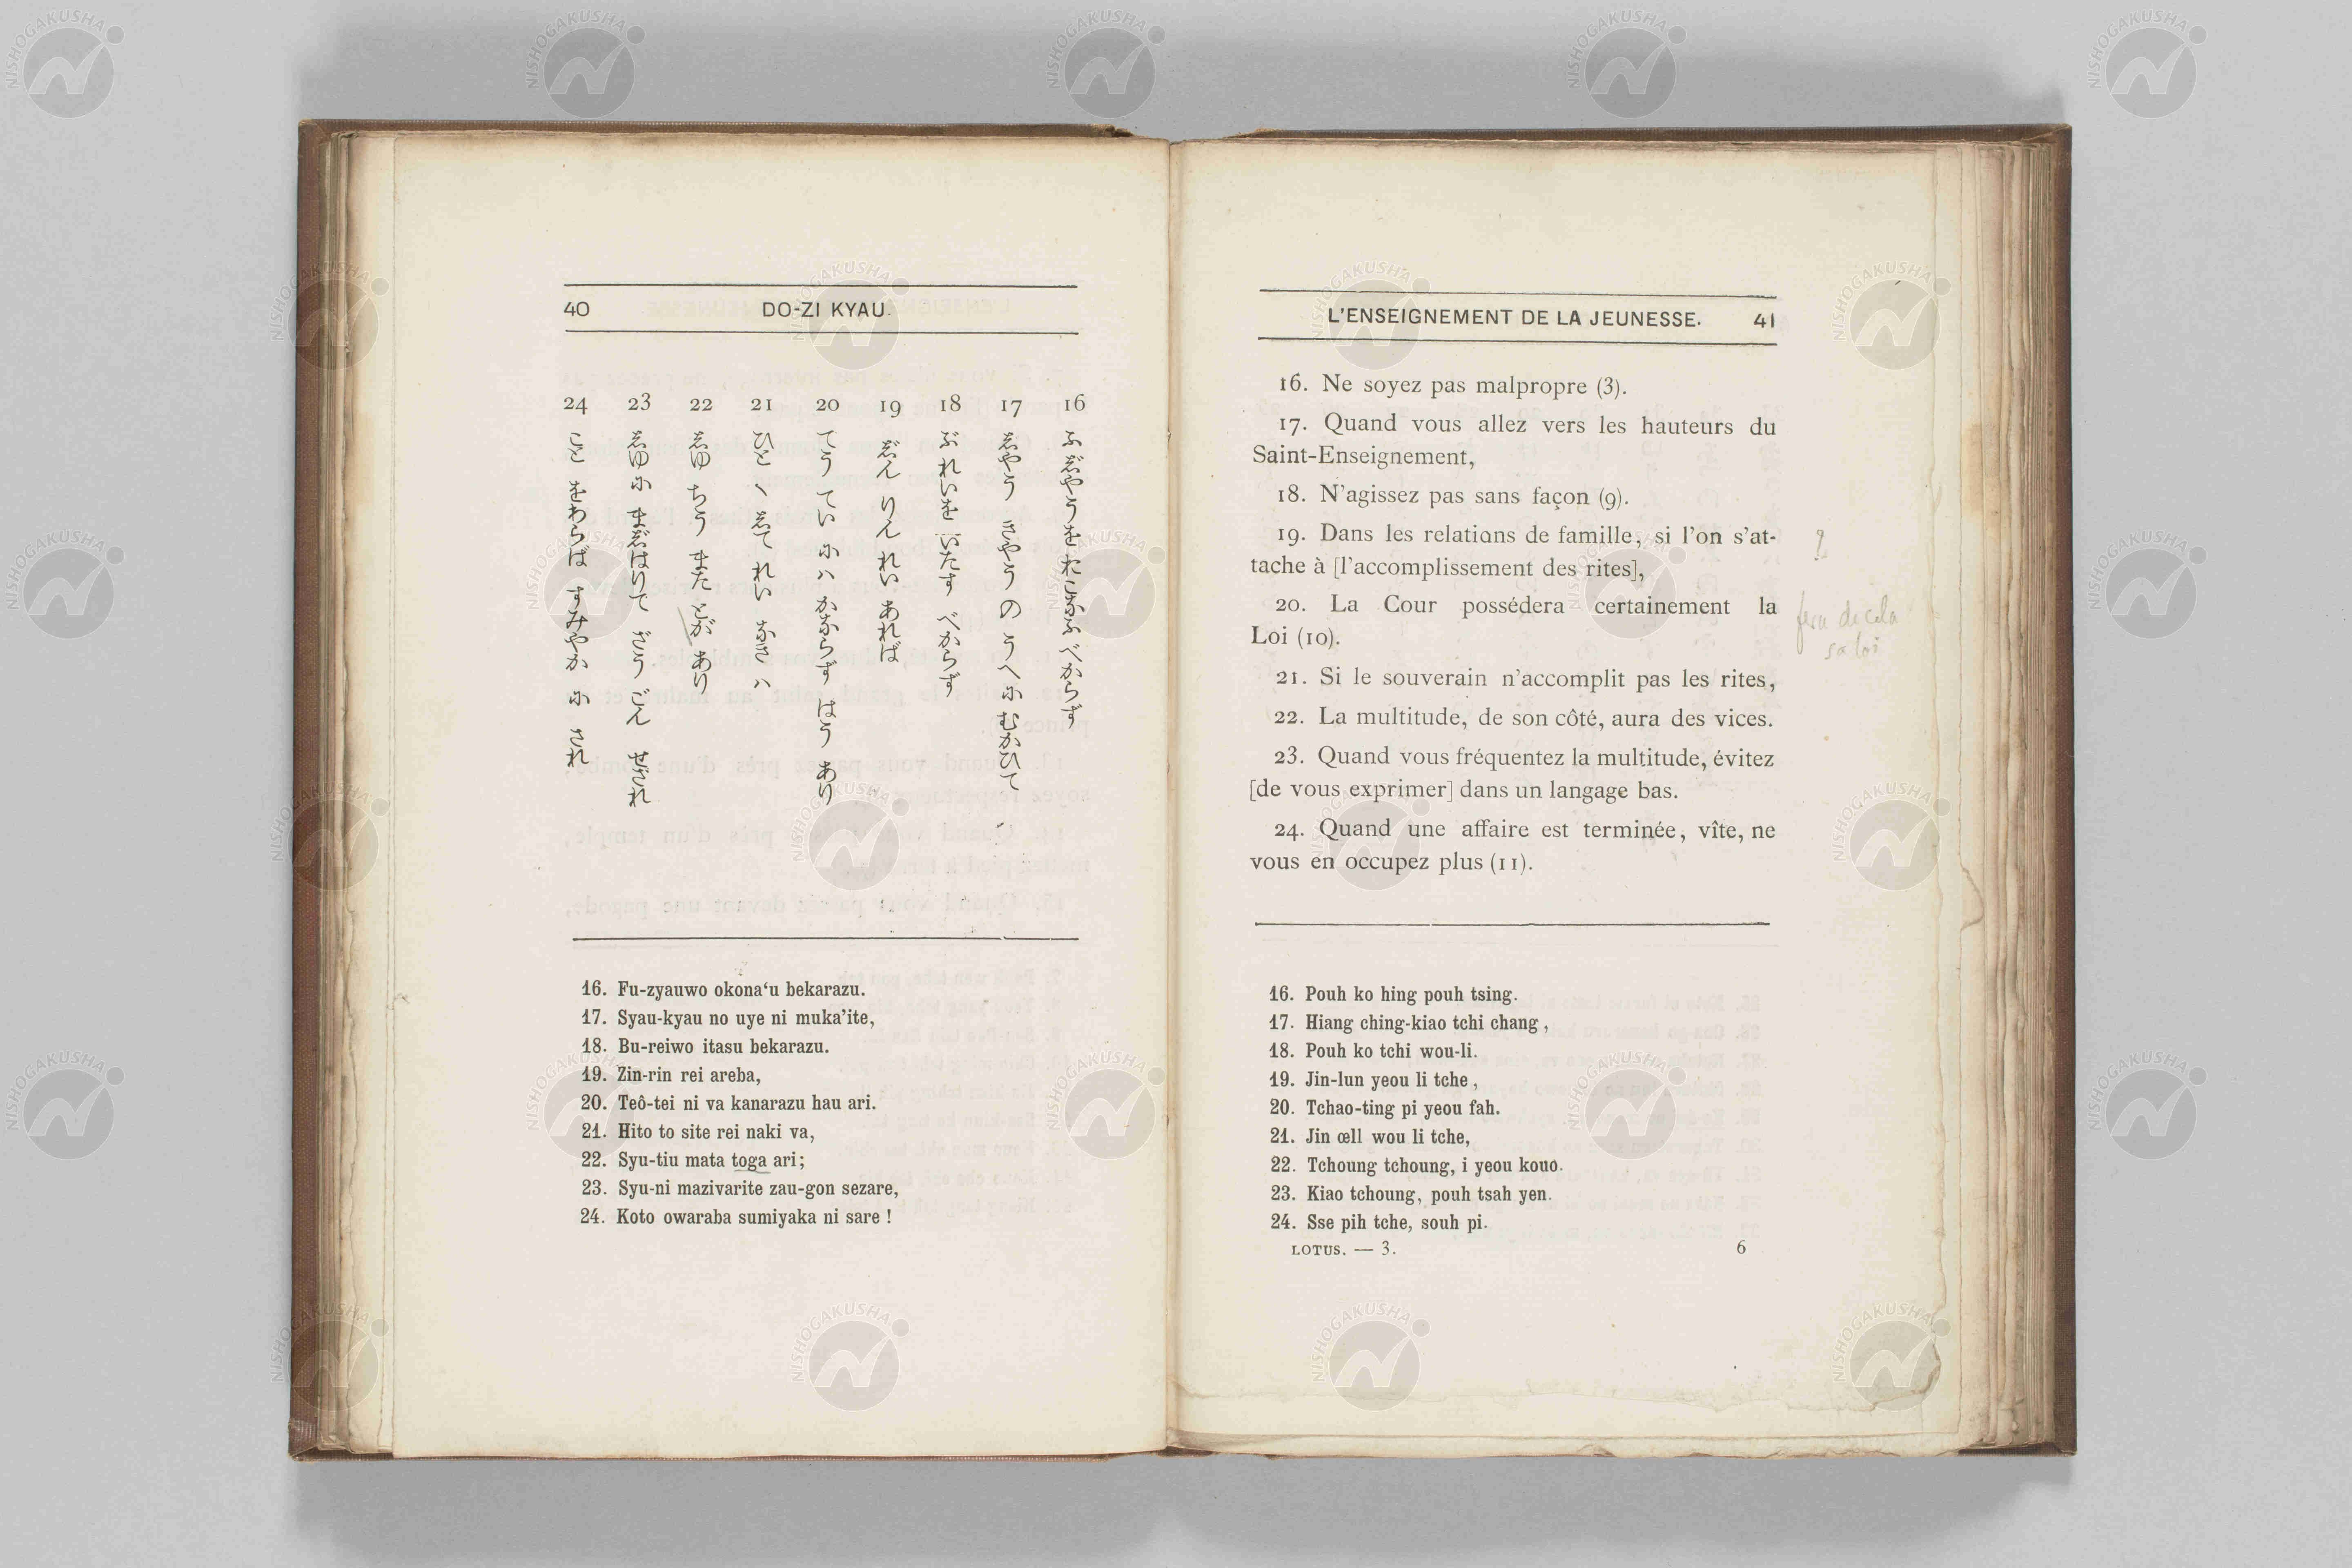 40 DO-ZI KYAU.
16 ふじやうをおこなふべからず
17 しやう きやう の うへ に むかひて
18 ぶれいを いたす べからず
19 じん りん れい あれば
20 てう てい にハ かならず はう あり
21 ひと ヽ して れい なきハ
22 しゆ ちう また とが あり
23 しゆに まじはりて ざう ごん せざれ
24 こと をわらば すみやか に され
16. Fu-zyauwo okona‘u bekarazu.
17. Syau-kyau no uye ni muka’ite,
18. Bu-reiwo itasu bekarazu.
19. Zin-rin rei areba,
20. Teô-tei ni va kanarazu hau ari.
21. Hito to site rei naki va,
22. Syu-tiu mata toga ari;
23. Syu-ni mazivarite zau-gon sezare,
24. Koto owaraba sumiyaka ni sare !
L'ENSEIGNEMENT DE LA JEUNESSE. 41
16. Ne soyez pas malpropre (3).
17. Quand vous allez vers les hauteurs du
Saint-Enseignement,
18. N'agissez pas sans façon (9).
19. Dans les relations de famille, si l'on s'at-
tache à [l'accomplissement des rites],
?
20. La Cour possédera certainement la
Loi (10).
fera de cela
sa loi
21. Si le souverain n'accomplit pas les rites,
22. La multitude, de son côté, aura des vices.
23. Quand vous fréquentez la multitude, évitez
[de vous exprimer] dans un langage bas.
24. Quand une affaire est terminée, vîte, ne
vous en occupez plus (11).
16. Pouh ko hing pouh tsing.
17. Hiang ching-kiao tchi chang,
18. Pouh ko tchi wou-li.
19. Jin-lun yeou li tche,
20. Tchao-ting pi yeou fah.
21. Jin œll wou li tche,
22. Tchoung tchoung, i yeou kouo.
23. Kiao tchoung, pouh tsah yen.
24. Sse pih tche, souh pi.
LOTUS. — 3. 6
NISHOGAKUSHA